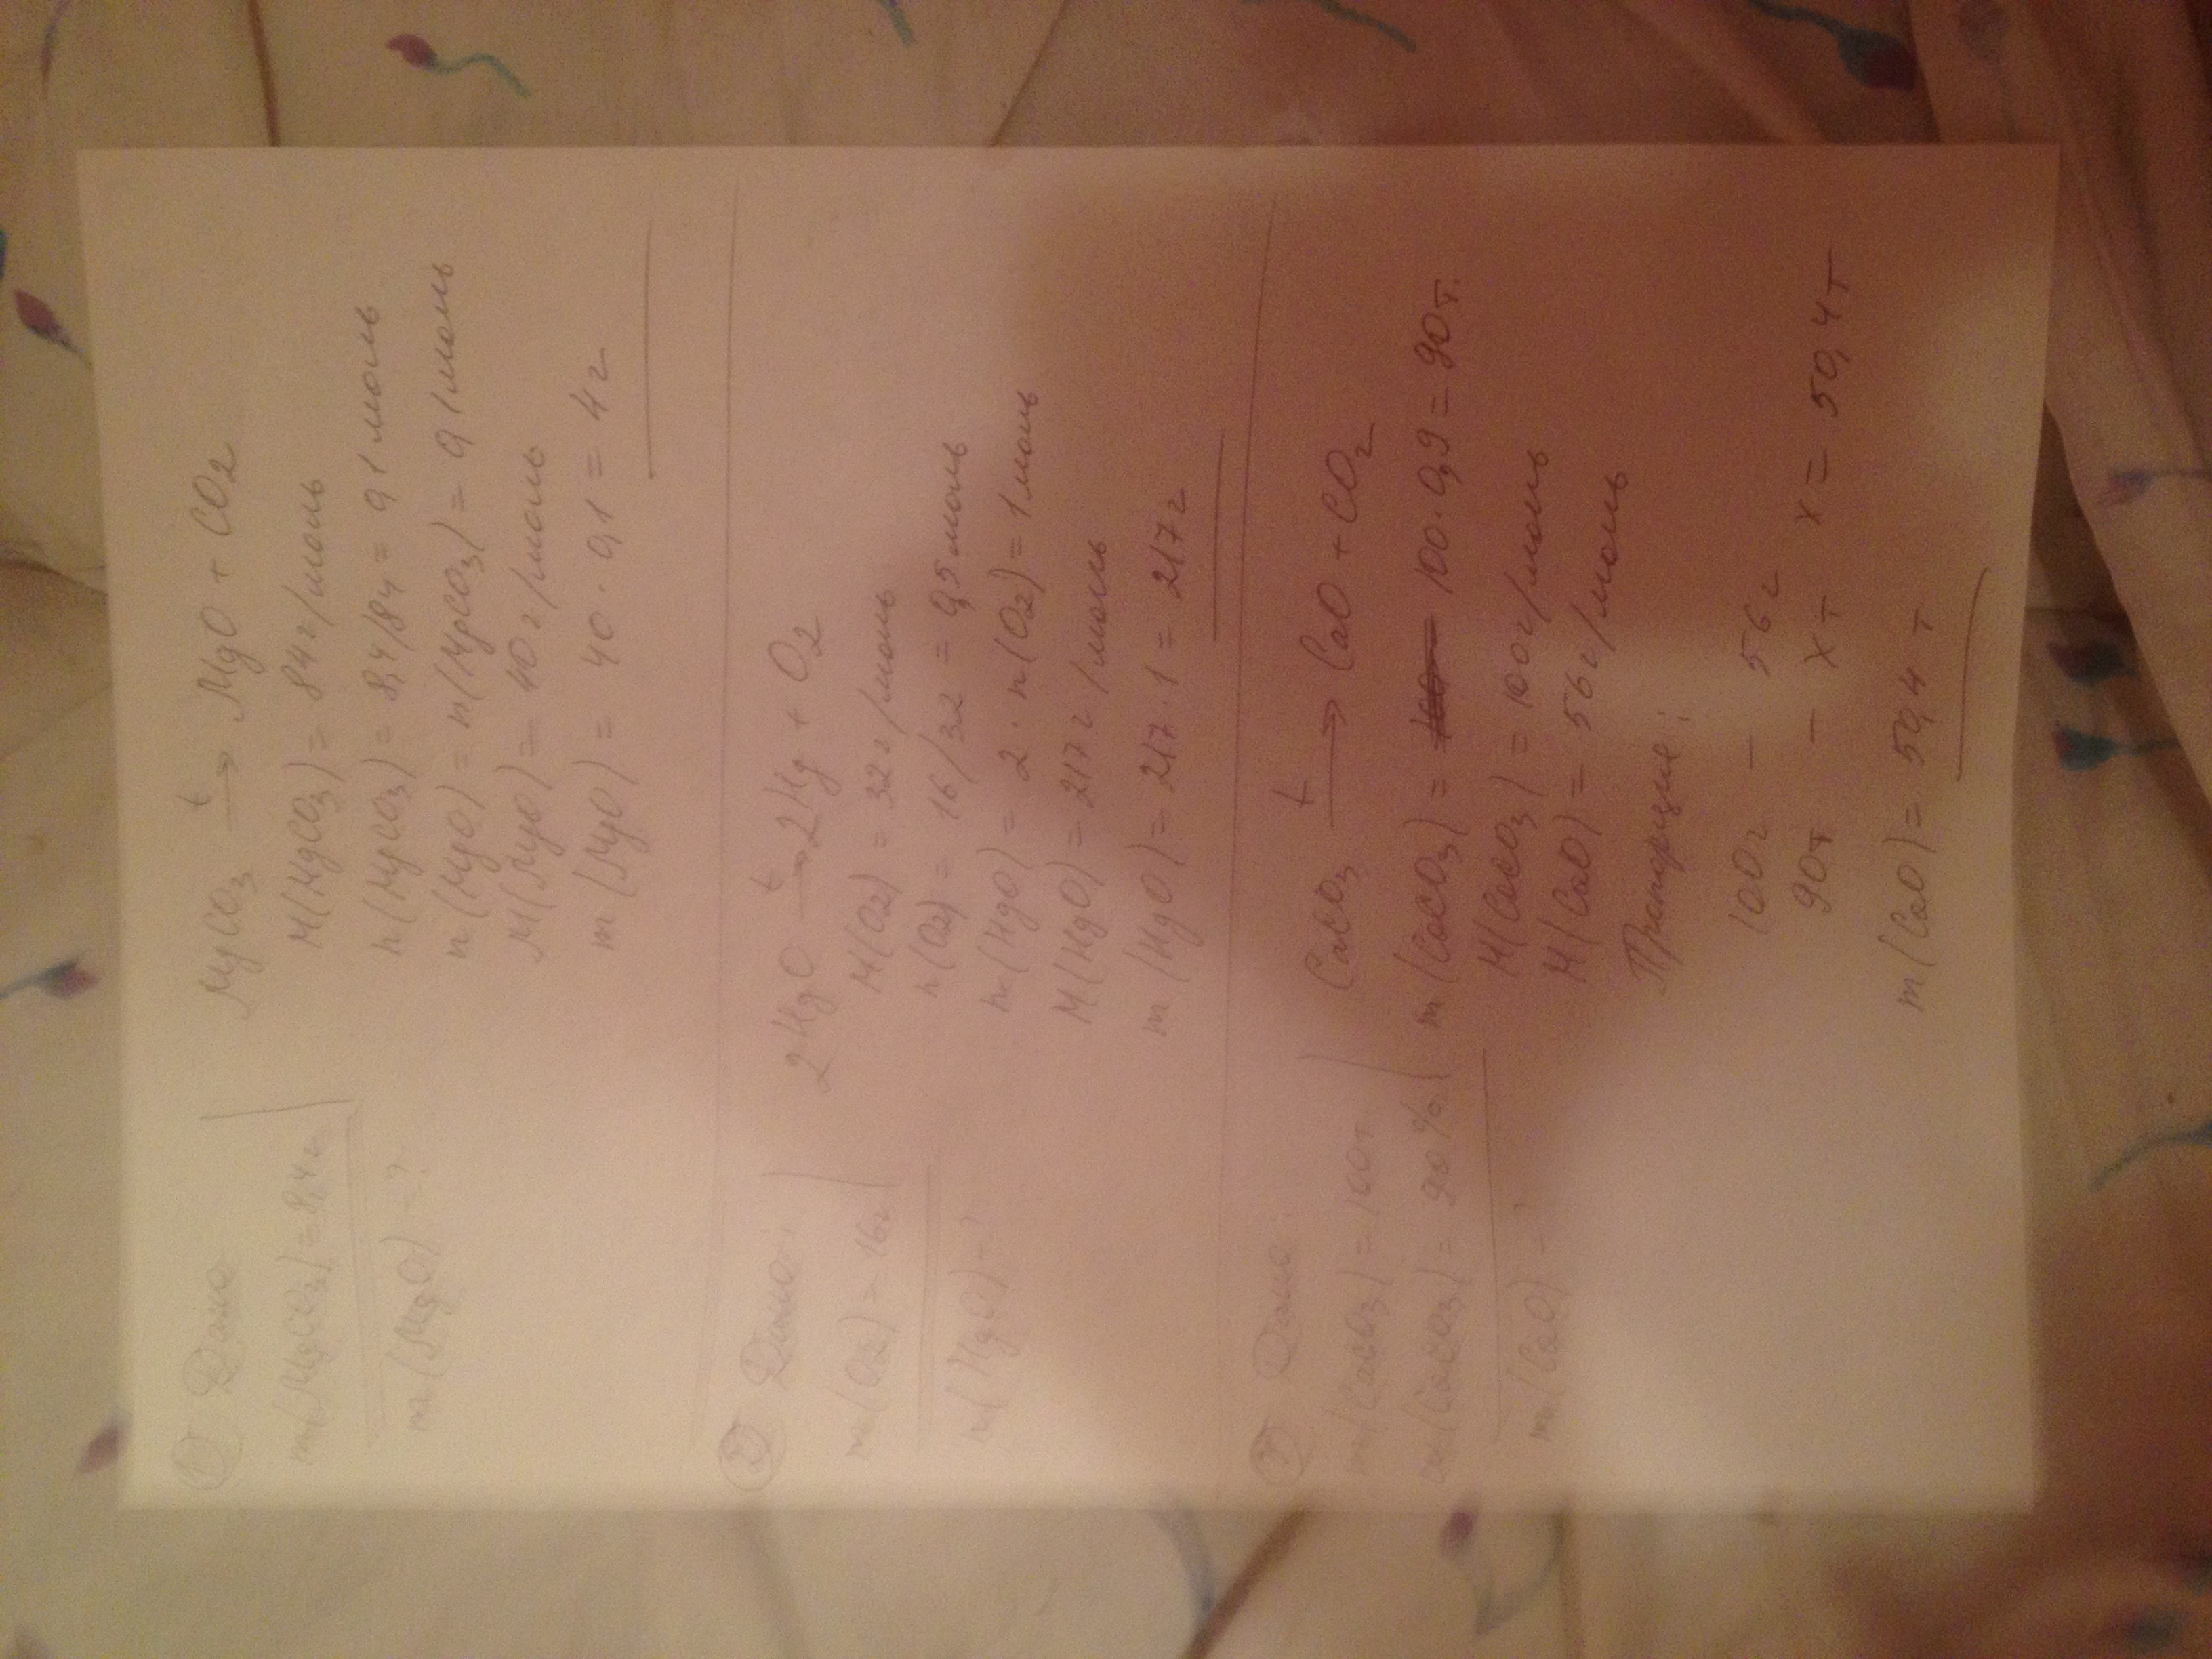 ① Дано
m(MgCO3) = 8,4 г
m(MgO) = ?
MgCO3 t→ MgO + CO2
M(MgCO3) = 84 г/моль
n(MgCO3) = 8,4/84 = 0,1 моль
n(MgO) = n(MgCO3) = 0,1 моль
M(MgO) = 40 г/моль
m(MgO) = 40 · 0,1 = 4 г
② Дано:
m(O2) = 16 г
m(HgO) - ?
2HgO t→ 2Hg + O2
M(O2) = 32 г/моль
n(O2) = 16/32 = 0,5 моль
n(HgO) = 2 · n(O2) = 1 моль
M(HgO) = 217 г/моль
m(HgO) = 217 · 1 = 217 г
Дано:
m(CaCO3) = 100т
(CaCO3) = 90%
m(CaO) - ?
CaCO3 t→ CaO + CO2
m(CaCO3) = 100 · 0,9 = 90 т.
M(CaCO3) = 100 г/моль
M(CaO) = 56 г/моль
Пропорция:
100 г - 56 г
90 т - х т х = 50,4 т
m(CaO) = 50,4 т